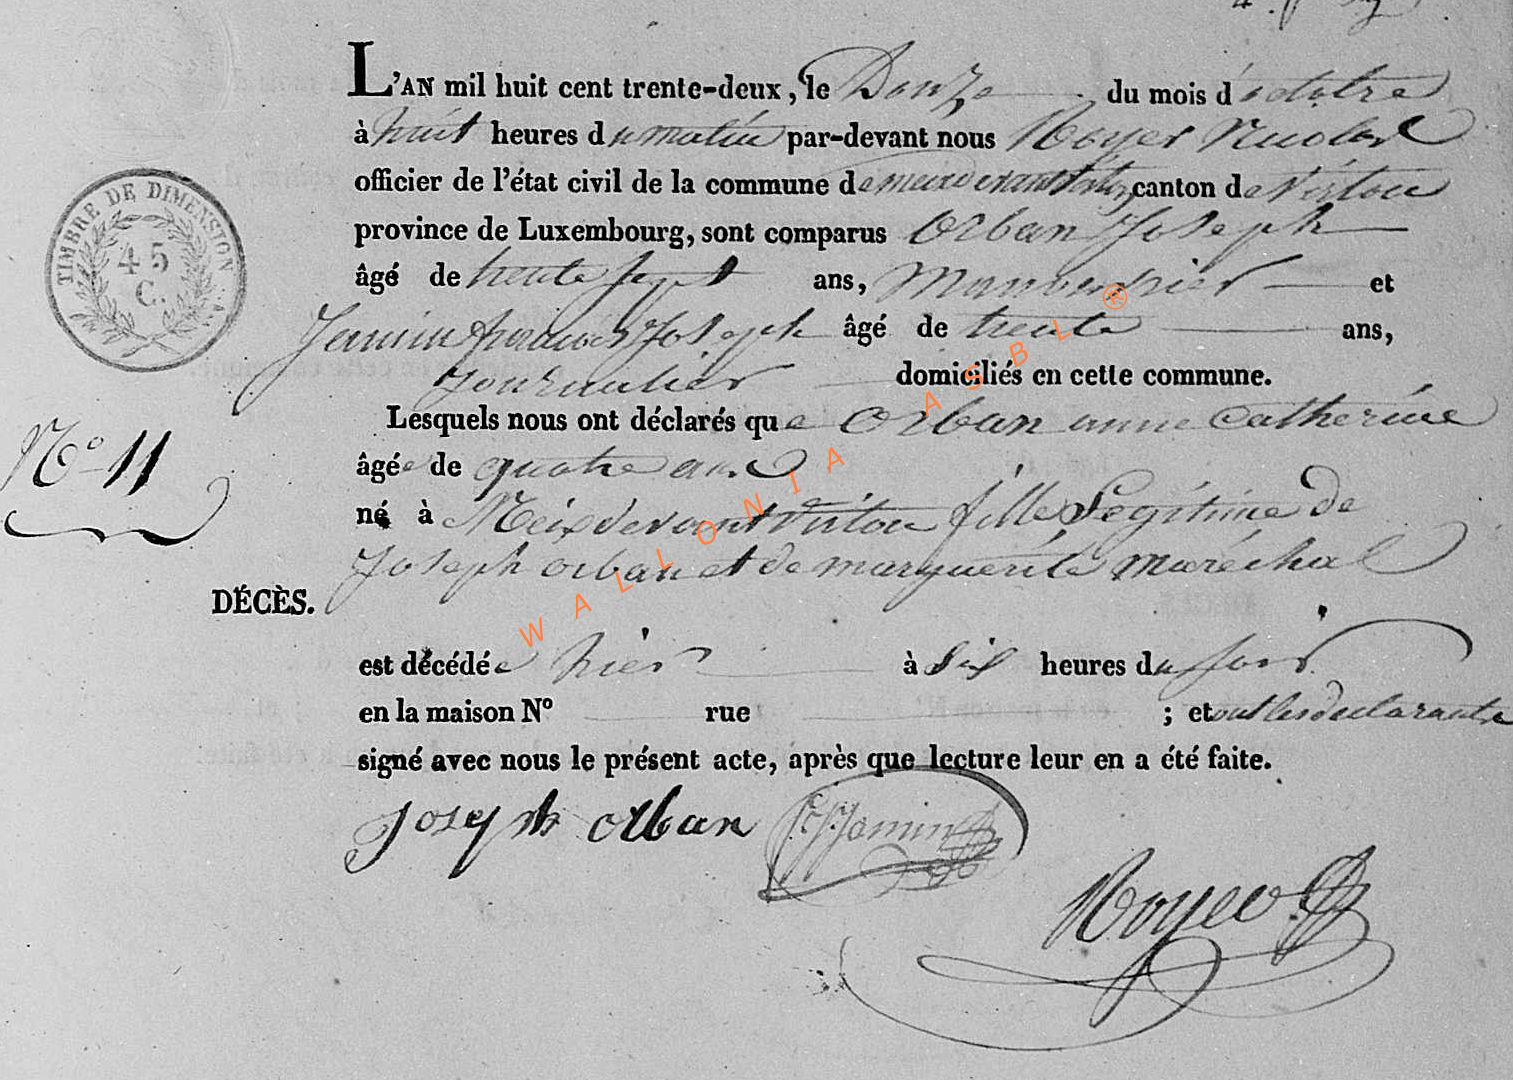 L'AN mil huit cent trente-deux, le Douze du mois d'octobre
à huit heures du matin par-devant nous Royer Nicolas
officier de l'état civil de la commune de meix devant virton canton de Virton
province de Luxembourg, sont comparus Orban Joseph
âgé de trente sept ans, Manouvrier et
Jamin françois Joseph âgé de trente ans,
Journalier domiciliés en cette commune.
Lesquels nous ont déclarés que Orban anne Catherine
âgée de quatre ans
né à Meix devant Virton fille Légitime de
Joseph orban et de marguerite maréchal
DÉCÈS.
est décédée hier à six heures du soir
en la maison N° rue ; et ont les declarants
signé avec nous le présent acte, après que lecture leur en a été faite.
Joseph orban F. J. Jamin
Royer
TIMBRE DE DIMENSION
45
C.
N° 11
WALLONIA ASBL ®